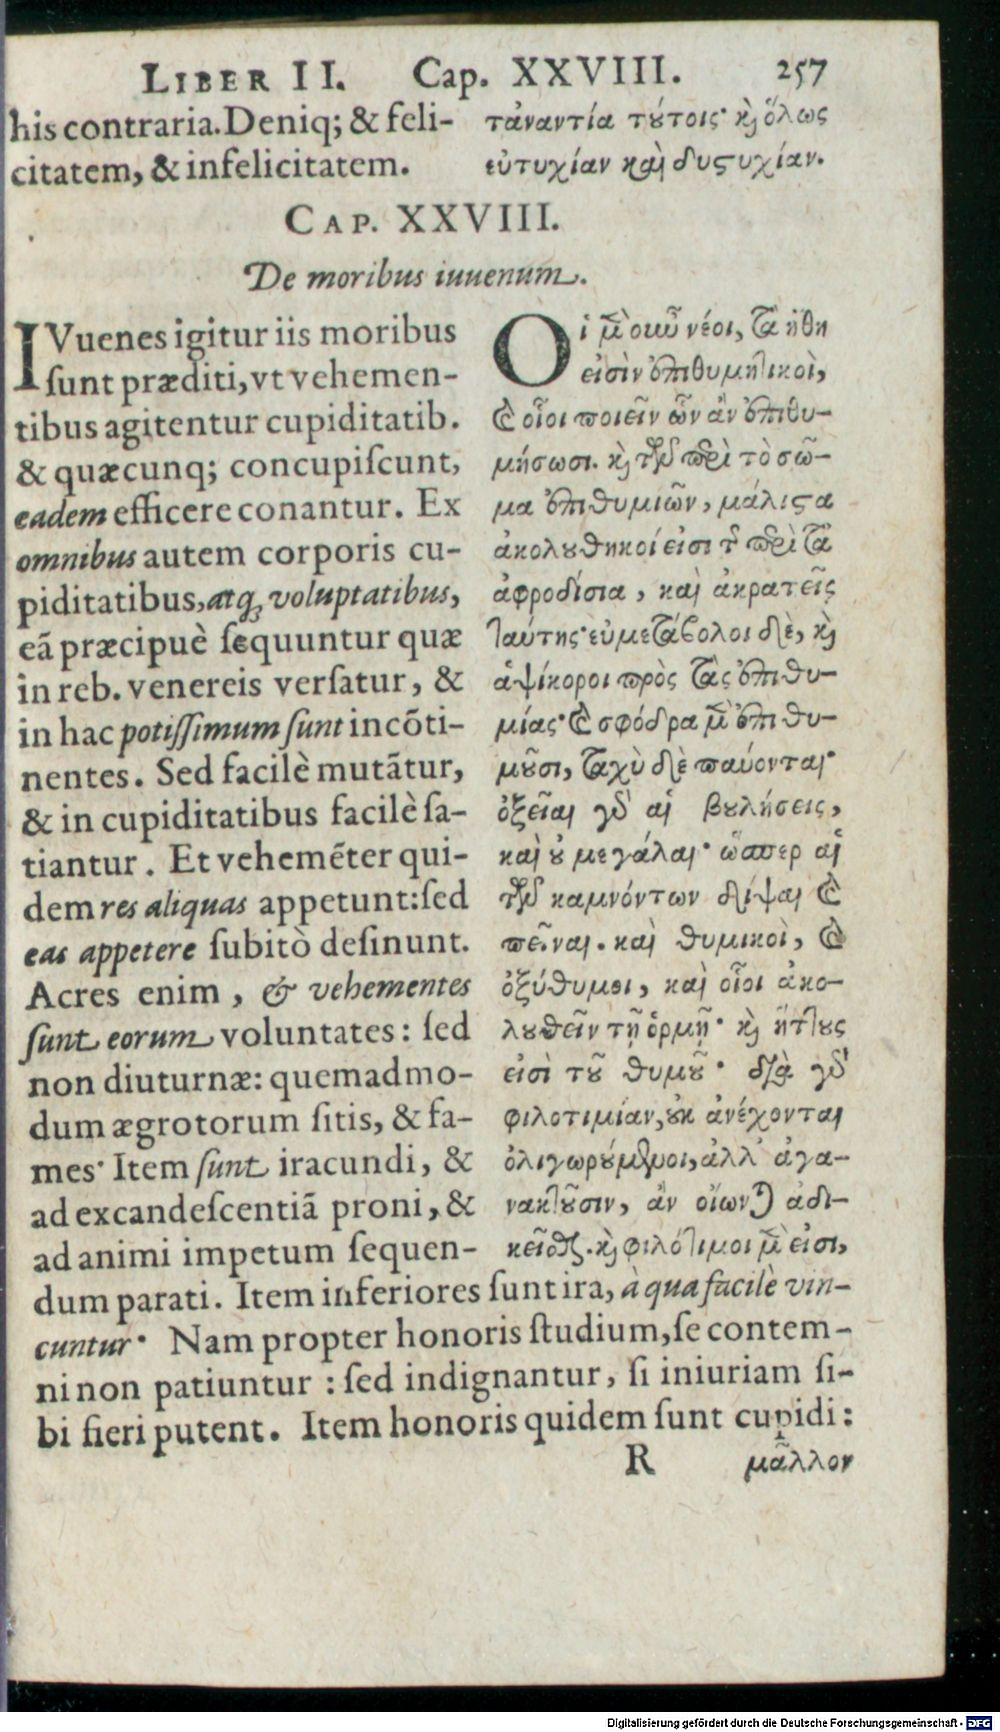 LIBER II. Cap. XXVIII. 257
his contraria. Deniq; & feli-
citatem, & infelicitatem.
τἀναντία τούτοις· καὶ ὅλως
εὐτυχίαν καὶ δυςυχίαν.
CAP. XXVIII.
De moribus iuuenum.
IVuenes igitur iis moribus
ſunt præditi, vt vehemen-
tibus agitentur cupiditatib.
& quæcunq; concupiſcunt,
eadem efficere conantur. Ex
omnibus autem corporis cu-
piditatibus, atq; voluptatibus,
eã præcipuè ſequuntur quæ
in reb. venereis verſatur, &
in hac potiſſimum ſunt incõti-
nentes. Sed facilè mutãtur,
& in cupiditatibus facilè ſa-
tiantur. Et vehemẽter qui-
dem res aliquas appetunt: ſed
eas appetere ſubitò deſinunt.
Acres enim, & vehementes
ſunt eorum voluntates: ſed
non diuturnæ: quemadmo-
dum ægrotorum ſitis, & fa-
mes· Item ſunt iracundi, &
ad excandeſcentiã proni, &
ad animi impetum ſequen-
Οἱ μὲν οὖν νέοι, τὰ ἤθη
εἰσὶν ἐπιθυμητικοὶ,
καὶ οἷοι ποιεῖν ὧν ἂν ἐπιθυ-
μήσωσι. καὶ τῶν περὶ τὸ σῶ-
μα ἐπιθυμιῶν, μάλιςα
ἀκολουθητικοί εἰσι τῆς περὶ τὰ
ἀφροδίσια, καὶ ἀκρατεῖς
ταύτης· εὐμετάβολοι δὲ, καὶ
ἁψίκοροι πρὸς τὰς ἐπιθυ-
μίας· καὶ σφόδρα μὲν ἐπιθυ-
μοῦσι, ταχὺ δὲ παύονται·
ὀξεῖαι γὰρ αἱ βουλήσεις,
καὶ οὐ μεγάλαι· ὥσπερ αἱ
τῶν καμνόντων δίψαι καὶ
πεῖναι. καὶ θυμικοὶ, καὶ
ὀξύθυμοι, καὶ οἷοι ἀκο-
λουθεῖν τῇ ὁρμῇ· καὶ ἥττους
εἰσὶ τοῦ θυμοῦ· διὰ γὰρ
φιλοτιμίαν, οὐκ ἀνέχονται
ὀλιγωρούμενοι, ἀλλ' ἀγα-
νακτοῦσιν, ἂν οἴωνται ἀδι-
κεῖσθαι. καὶ φιλότιμοι μὲν εἰσι,
dum parati. Item inferiores ſunt ira, à qua facilè vin-
cuntur· Nam propter honoris ſtudium, ſe contem-
ni non patiuntur: ſed indignantur, ſi iniuriam ſi-
bi fieri putent. Item honoris quidem ſunt cupidi:
R μᾶλλον
Digitalisierung gefördert durch die Deutsche Forschungsgemeinschaft - DFG